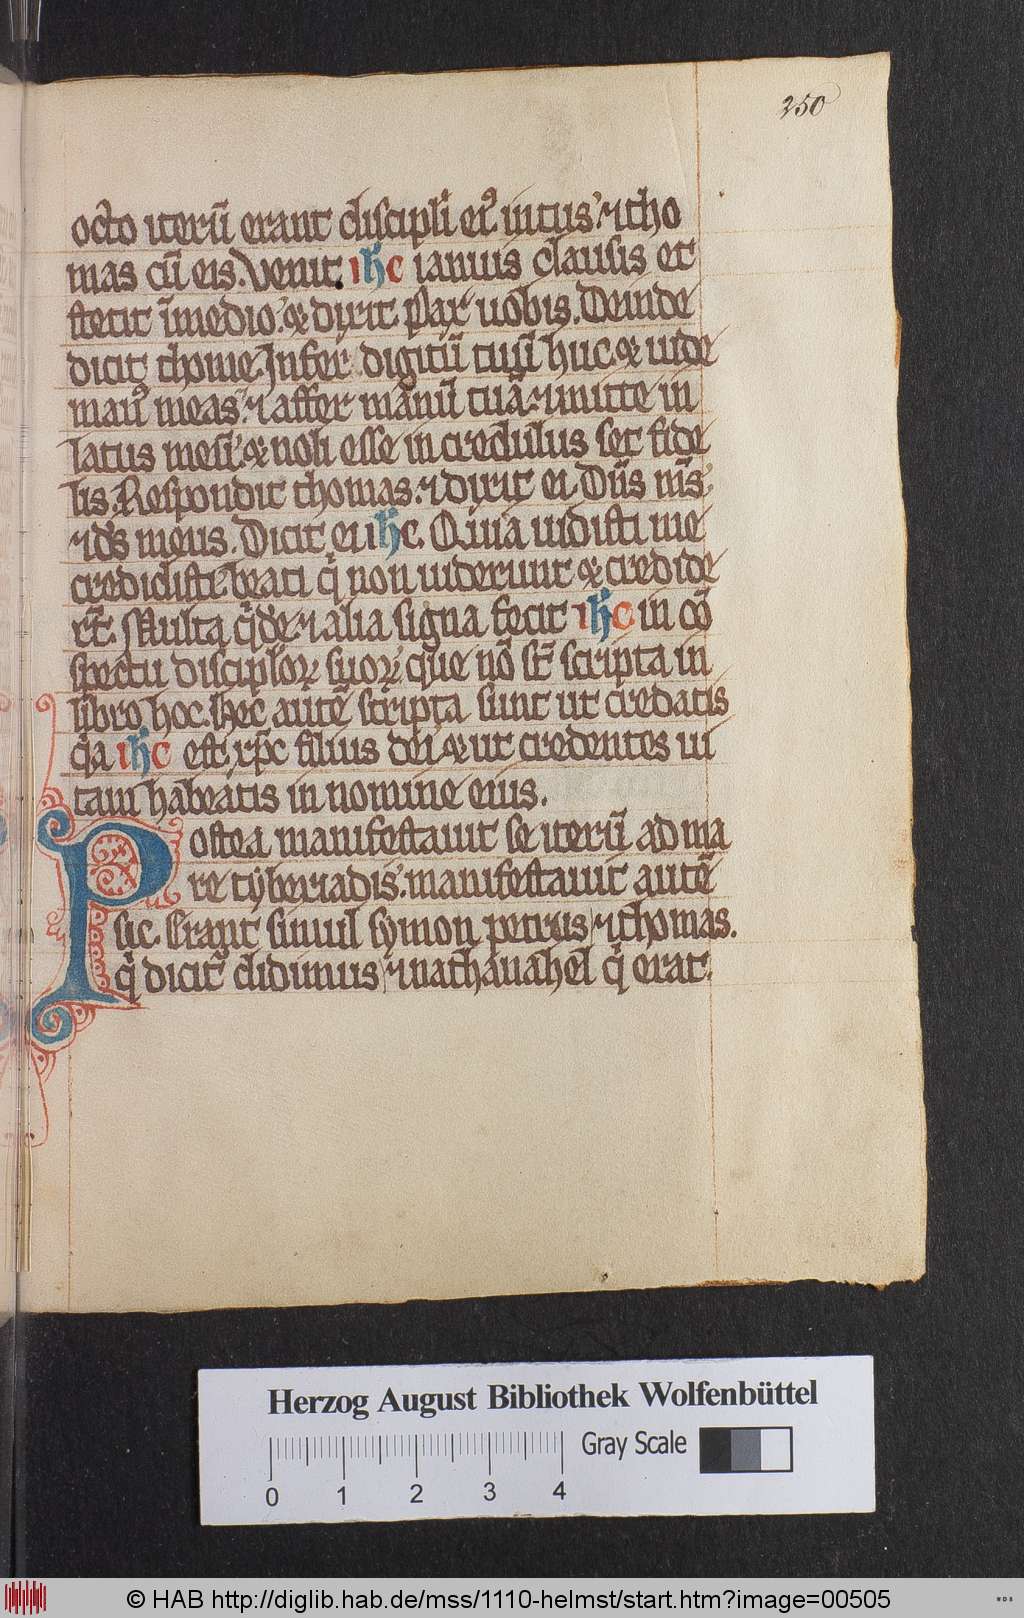 250
octo iterū erant discipli eiꝰ intus ⁊ tho
mas cū eis. Venit ihc ianuis clausis et
stetit ī medio. ⁊ dixit. Pax uobis. Deinde
dicit thome. Infer digitū tuū huc. ⁊ uide
manꝰ meas. ⁊ affer manū tuā. ⁊ mitte in
latus meū. ⁊ noli esse incredulus set fide
lis. Respondit thomas. ⁊ dixit ei. Dn̄s m̄s
⁊ ds̄ meus. Dicit ei ihc. Quia uidisti me
credidisti. beati q̇ non uiderunt ⁊ credide
rt̄. Multa q̇de ⁊ alia signa fecit ihc in cō
spectu disciploꝝ suoꝝ que nō st̄ scripta in
libro hoc. Hec autē scripta sunt ut credatis
qͣa ihc est xp̄c filius dei ⁊ ut credentes ui
tam habeatis in nomine eius.
Postea manifestauit se iterū ad ma
re tyberiadis. manifestauit autē
sic. Erant simul symon petrus ⁊ thomas.
q̇ dicitᷣ didimus ⁊ nathanahel q̇ erat.
Herzog August Bibliothek Wolfenbüttel
Gray Scale
0 1 2 3 4
© HAB http://diglib.hab.de/mss/1110-helmst/start.htm?image=00505